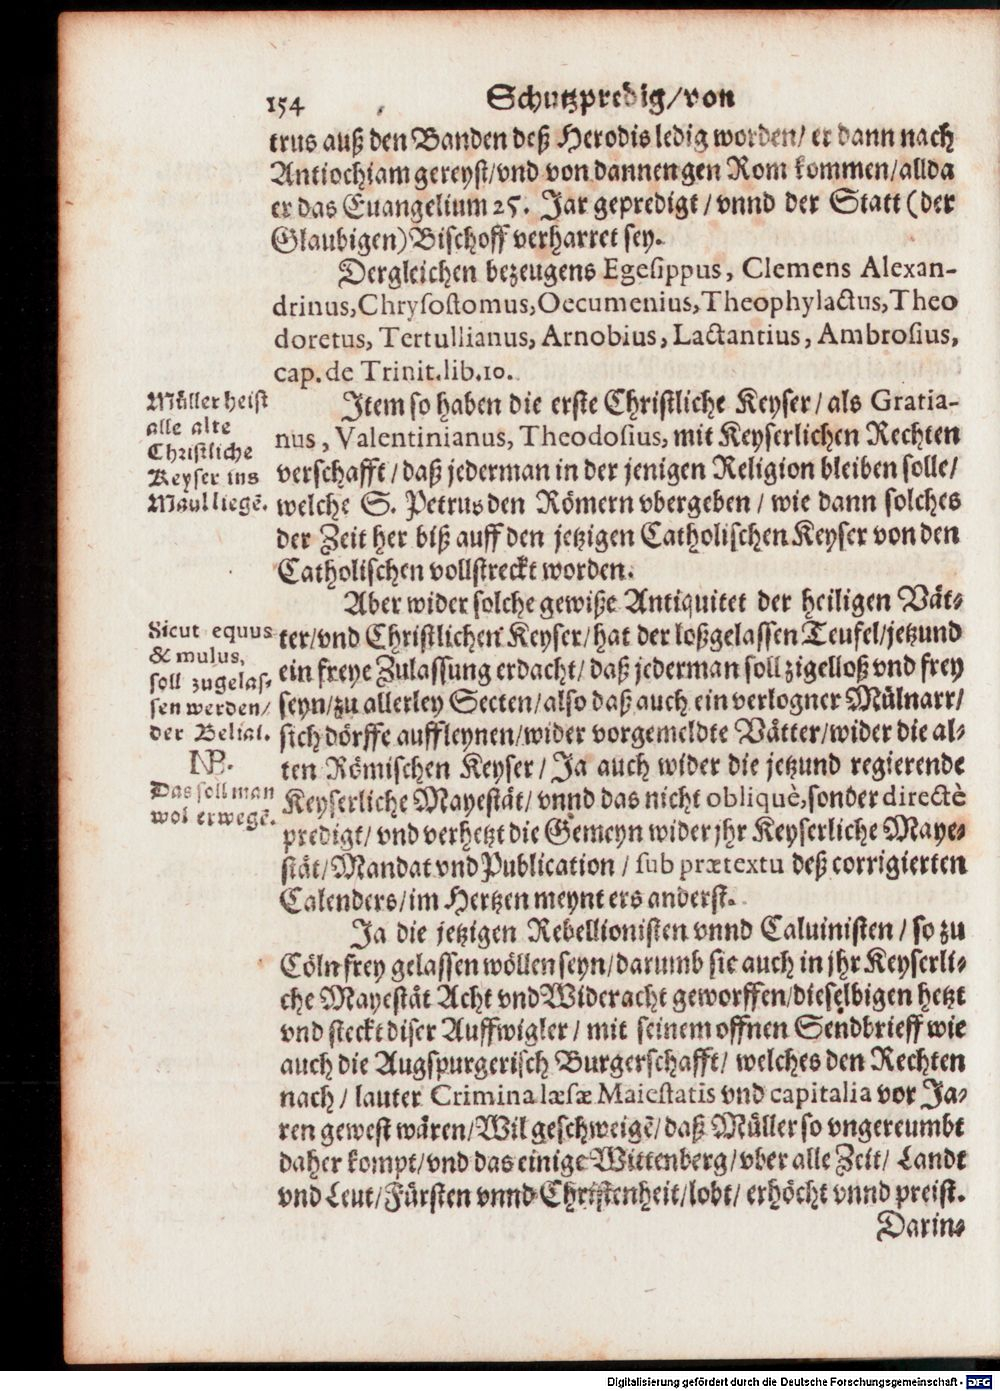 154 Schutzpredig/von
trus auß den Banden deß Herodis ledig worden/ er dann nach
Antiochiam gereyst/vnd von dannen gen Rom kommen/allda
er das Euangelium 25. Jar gepredigt/vnnd der Statt (der
Glaubigen) Bischoff verharret sey.
Dergleichen bezeugens Egesippus, Clemens Alexan-
drinus, Chrysostomus, Oecumenius, Theophylactus, Theo
doretus, Tertullianus, Arnobius, Lactantius, Ambrosius,
cap. de Trinit. lib. 10.
Müller heist
alle alte
Christliche
Keyser ins
Maul liegē.
Item so haben die erste Christliche Keyser/als Gratia-
nus, Valentinianus, Theodosius, mit Keyserlichen Rechten
verschafft/daß jederman in der jenigen Religion bleiben solle/
welche S. Petrus den Römern vbergeben/wie dann solches
der Zeit her biß auff den jetzigen Catholischen Keyser von den
Catholischen vollstreckt worden.
Sicut equus
& mulus,
soll zugelas-
sen werden/
der Belial.
NB.
Das soll man
wol erwegē.
Aber wider solche gewiße Antiquitet der heiligen Vät-
ter/vnd Christlichen Keyser/hat der loßgelassen Teufel/jetzund
ein freye Zulassung erdacht/daß jederman soll zigelloß vnd frey
seyn/zu allerley Secten/also daß auch ein verlogner Mülnarr/
sich dörffe auffleynen/wider vorgemeldte Vätter/wider die al-
ten Römischen Keyser/Ja auch wider die jetzund regierende
Keyserliche Mayestät/vnnd das nicht obliquè, sonder directè
predigt/vnd verhetzt die Gemeyn wider jhr Keyserliche Maye-
stät/Mandat vnd Publication/sub prætextu deß corrigierten
Calenders/im Hertzen meynt ers anderst.
Ja die jetzigen Rebellionisten vnnd Caluinisten/so zu
Cöln frey gelassen wöllen seyn/darumb sie auch in jhr Keyserli-
che Mayestät Acht vnd Wideracht geworffen/dieselbigen hetzt
vnd steckt diser Auffwigler/mit seinem offnen Sendbrieff wie
auch die Augspurgerisch Burgerschafft/welches den Rechten
nach/lauter Crimina læsæ Maiestatis vnd capitalia vor Ja-
ren gewest wären/Wil geschweigē/daß Müller so vngereumbt
daher kompt/vnd das einige Wittenberg/vber alle Zeit/Landt
vnd Leut/Fürsten vnnd Christenheit/lobt/erhöcht vnnd preist.
Darin-
Digitalisierung gefördert durch die Deutsche Forschungsgemeinschaft - DFG